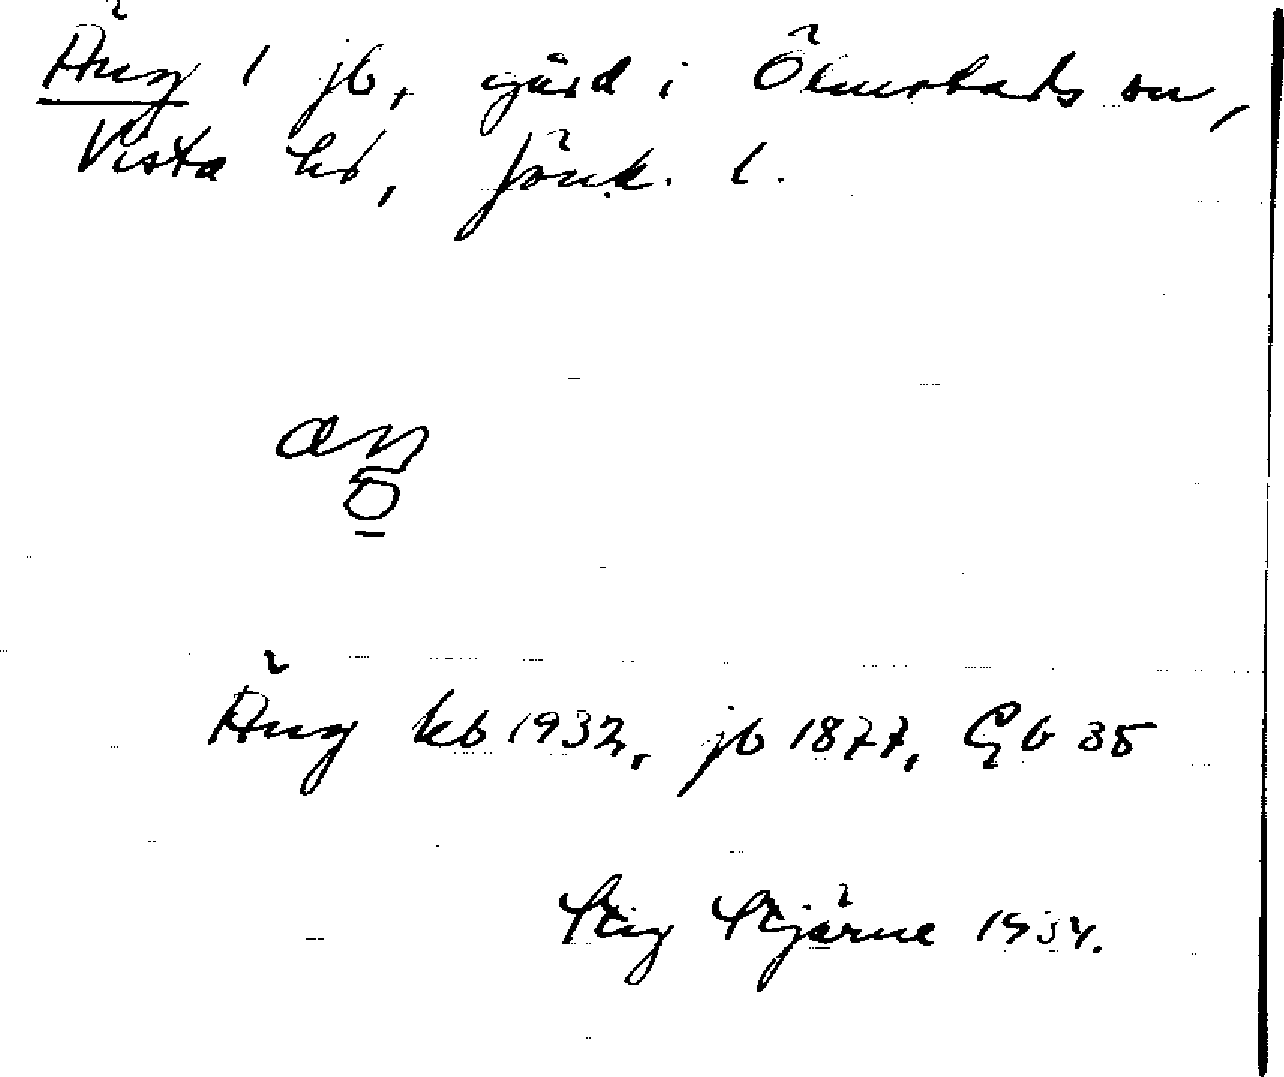 Äng 1 jb, gård i Ölmstads sn,
Vista hd, Jönk. l.
Äng kb 1932, jb 1877, Gb 35
Stig Stjärne 1934.